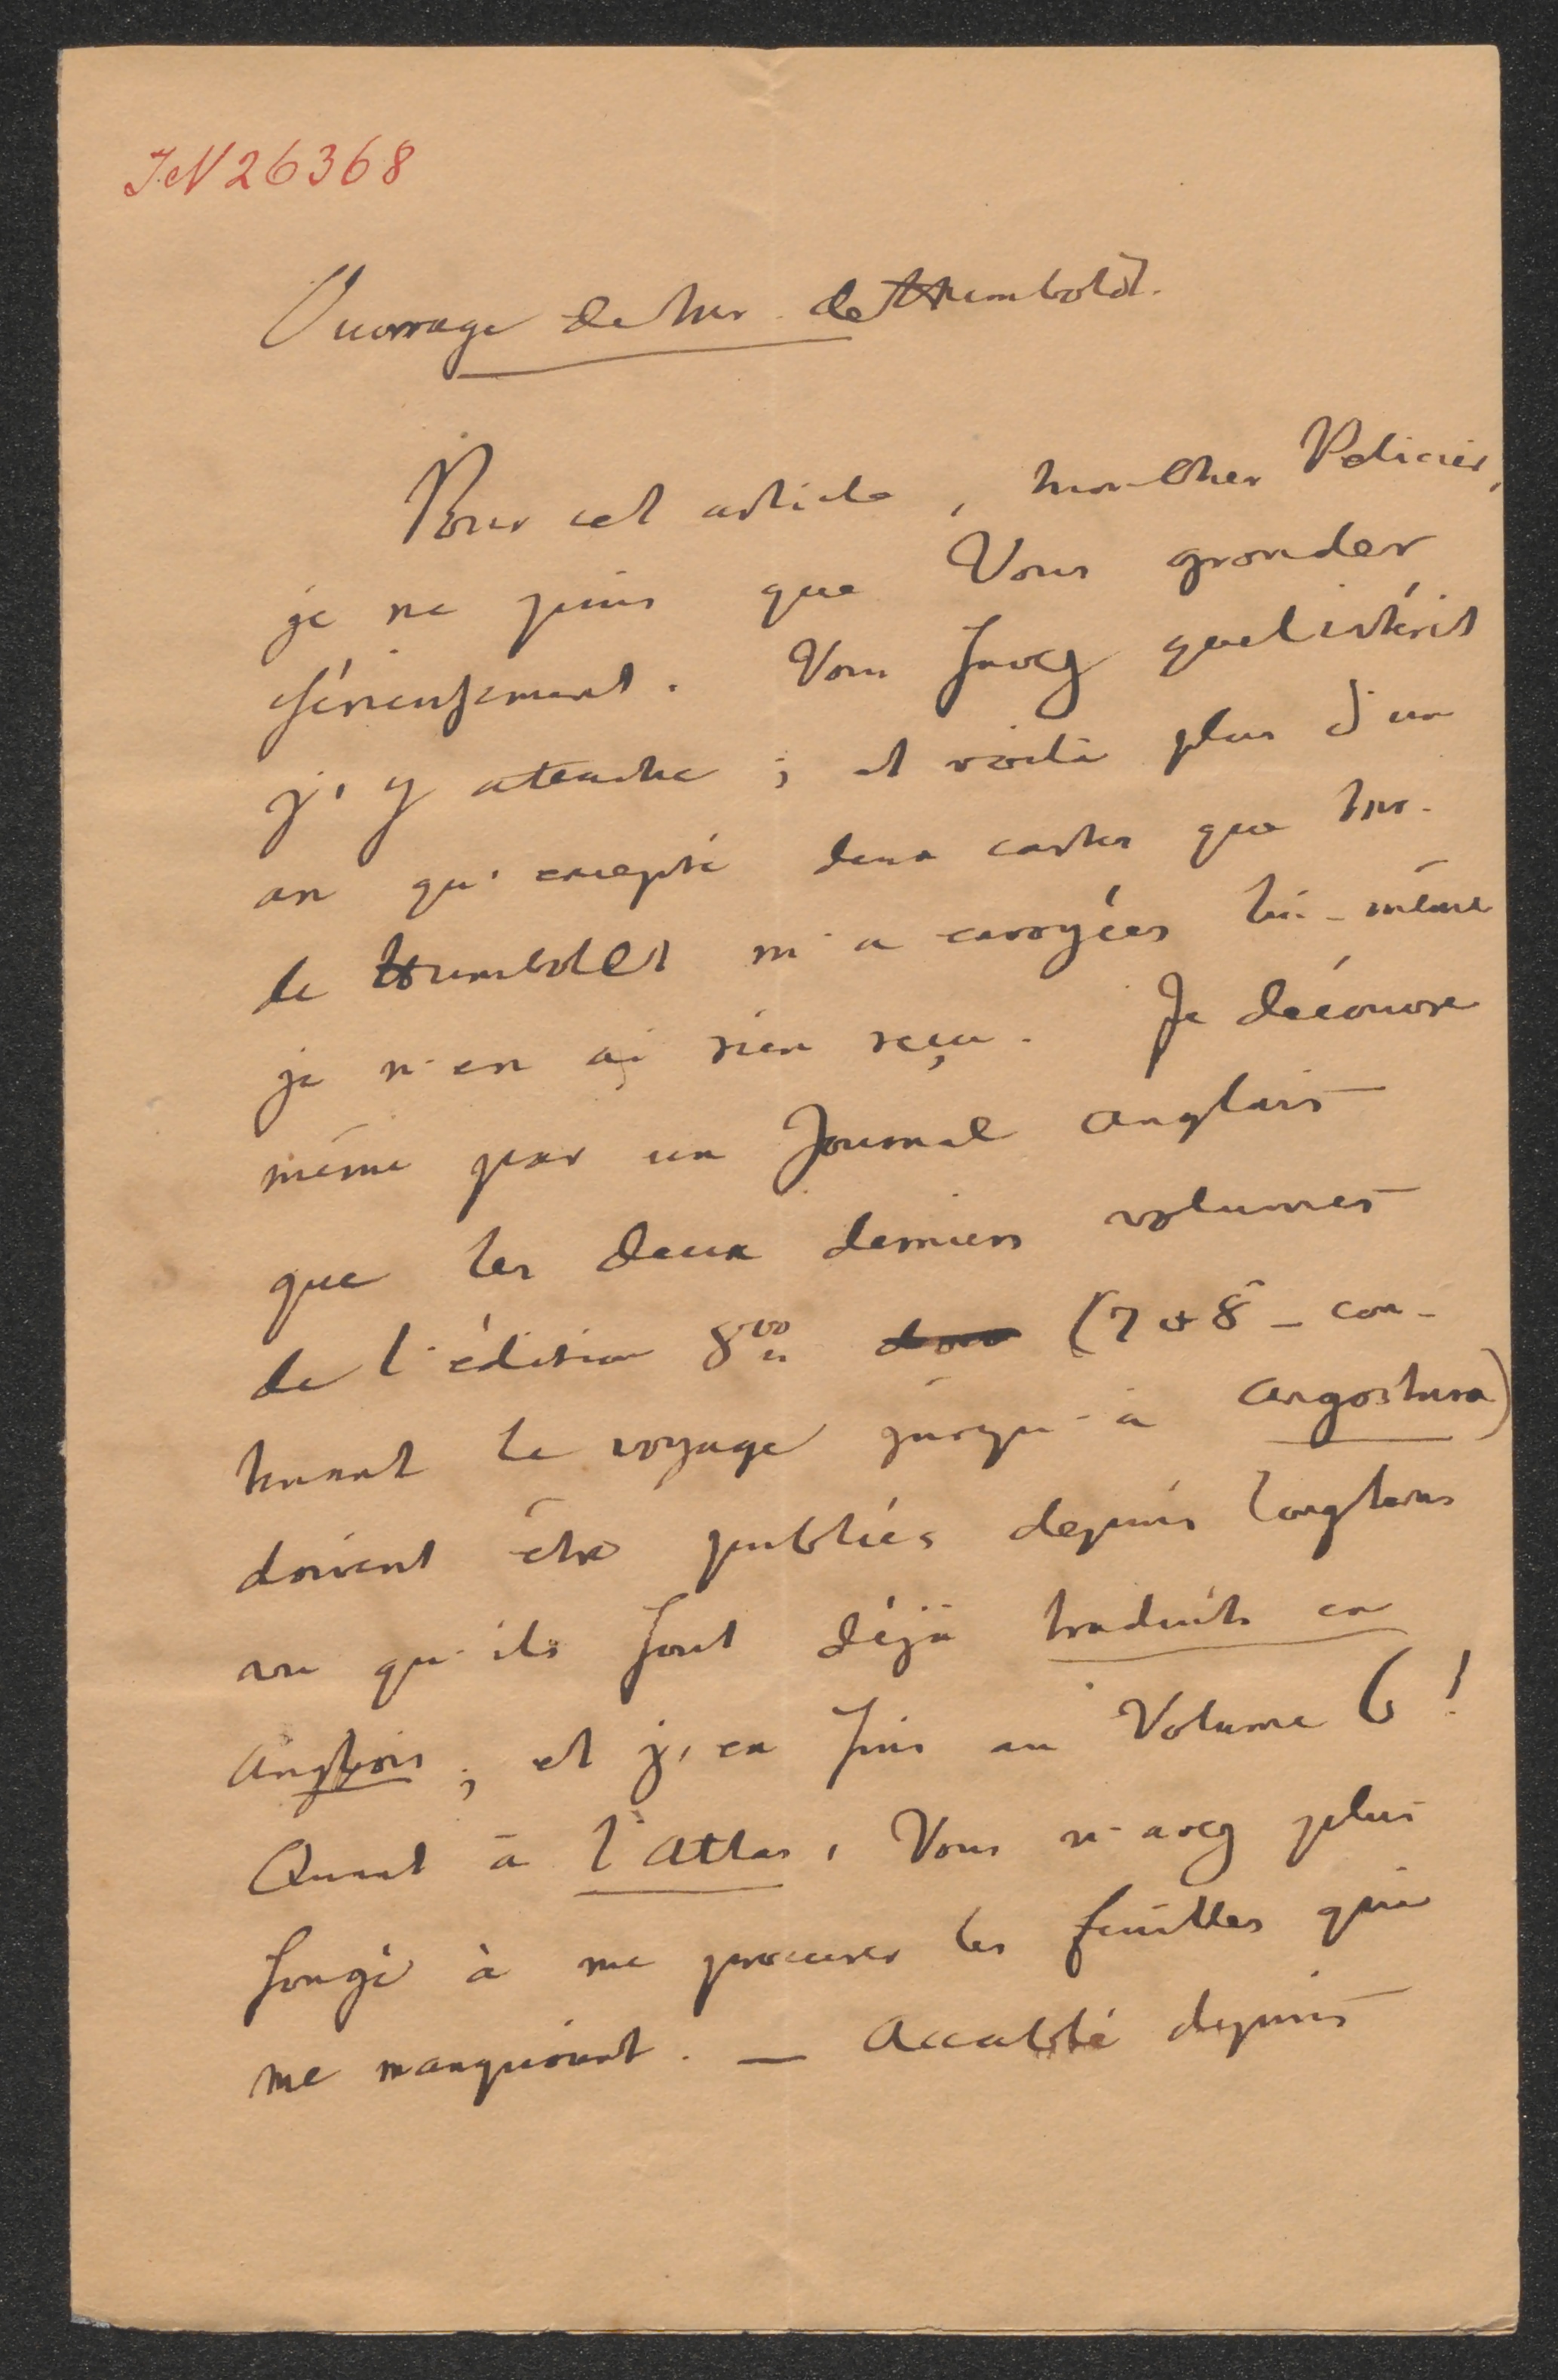 IN 26368
Ouvrage de Mr. de Humboldt.
Pour cet article, mon cher Pelicier,
je ne puis que Vous gronder
sérieusement. Vous savez quel intérêt
j'y attache ; et voilà plus d'un
an qu'excepté deux cartes que Mr.
de Humboldt m'a envoyées lui-même
je n'en ai rien reçu. Je découvre
même par un Journal anglais
que les deux derniers volumes
de l'édition 8vo (7 et 8 - con-
tenant le voyage jusqu'à Angostura)
doivent être publiés depuis longtems
vu qu'ils sont déjà traduits en
Anglois ; et j'en suis au Volume 6 !
Quant à l'Atlas, Vous n'avez plus
songé à me procurer les feuilles qui
me manquoient. — Accablé depuis